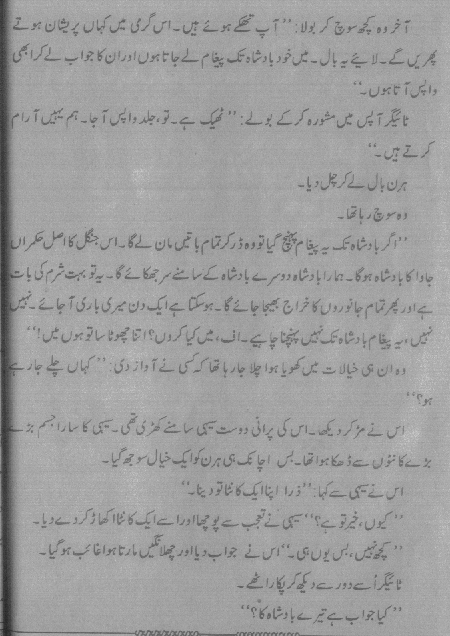 آخر وہ کچھ سوچ کر بولا: ’’آپ تھکے ہوئے ہیں۔ اس گرمی میں کہاں پریشان ہوتے
پھریں گے۔ لائیے یہ بال۔ میں خود بادشاہ تک پیغام لے جاتا ہوں اور ان کا جواب لے کر ابھی
واپس آتا ہوں۔‘‘
ٹائیگر آپس میں مشورہ کر کے بولے: ’’ٹھیک ہے۔ تو، جلد واپس آ جا۔ ہم یہیں آرام
کرتے ہیں۔‘‘
ہرن بال لے کر چل دیا۔
وہ سوچ رہا تھا۔
’’اگر بادشاہ تک یہ پیغام پہنچ گیا تو وہ ڈر کر تمام باتیں مان لے گا۔ اس جنگل کا اصل حکمراں
جاوا کا بادشاہ ہوگا۔ ہمارا بادشاہ دوسرے بادشاہ کے سامنے سر جھکائے گا۔ یہ تو بہت شرم کی بات
ہے اور پھر تمام جانوروں کا خراج بھیجا جائے گا۔ ہوسکتا ہے ایک دن میری باری آ جائے۔ نہیں
نہیں، یہ پیغام بادشاہ تک نہیں پہنچنا چاہیے۔ اف، میں کیا کروں؟ اتنا چھوٹا سا تو ہوں میں!‘‘
وہ ان ہی خیالات میں کھویا ہوا چلا جا رہا تھا کہ کسی نے آواز دی: ’’کہاں چلے جا رہے
ہو؟‘‘
اس نے مڑ کر دیکھا۔ اس کی پرانی دوست سیہی سامنے کھڑی تھی۔ سیہی کا سارا جسم بڑے
بڑے کانٹوں سے ڈھکا ہوا تھا۔ بس اچانک ہی ہرن کو ایک خیال سوجھ گیا۔
اس نے سیہی سے کہا: ’’ذرا اپنا ایک کانٹا تو دینا۔‘‘
’’کیوں، خیر تو ہے؟‘‘ سیہی نے تعجب سے پوچھا اور اسے ایک کانٹا اکھاڑ کر دے دیا۔
’’کچھ نہیں، بس یوں ہی۔‘‘ اس نے جواب دیا اور چھلانگیں مارتا ہوا غائب ہوگیا۔
ٹائیگر اُسے دور سے دیکھ کر پکار اٹھے۔
’’کیا جواب ہے تیرے بادشاہ کا؟‘‘